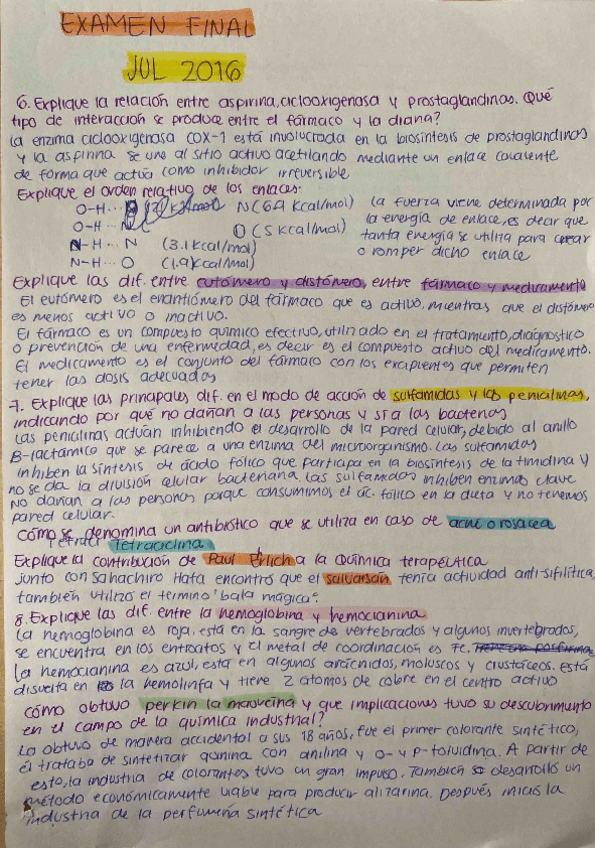 EXAMEN FINAL
JUL 2016
6. Explique la relación entre aspirina, ciclooxigenasa y prostaglandinas. Qué
tipo de interacción se produce entre el fármaco y la diana?
La enzima ciclooxigenasa COX-1 está involucrada en la biosíntesis de prostaglandinas
y la aspirina se une al sitio activo acetilando mediante un enlace covalente
de forma que actúa como inhibidor irreversible
Explique el orden relativo de los enlaces:
O-H... N (6.9 Kcal/mol) la fuerza viene determinada por
O-H... O (5 Kcal/mol) la energía de enlace, es decir que
N-H... N (3.1 Kcal/mol) tanta energía se utiliza para crear
N-H... O (1.9 Kcal/mol) o romper dicho enlace
Explique las dif. entre eutómero y distómero, entre fármaco y medicamento
El eutómero es el enantiómero del fármaco que es activo, mientras que el distómero
es menos activo o inactivo.
El fármaco es un compuesto químico efectivo, utilizado en el tratamiento, diagnóstico
o prevención de una enfermedad, es decir es el compuesto activo del medicamento.
El medicamento es el conjunto del fármaco con los excipientes que permiten
tener las dosis adecuadas
7. Explique las principales dif. en el modo de acción de sulfamidas y las penicilinas,
indicando por qué no dañan a las personas y sí a las bacterias
Las penicilinas actúan inhibiendo el desarrollo de la pared celular, debido al anillo
B-lactámico que se parece a una enzima del microorganismo. Las sulfamidas
inhiben la síntesis de ácido fólico que participa en la biosíntesis de la timidina y
no se da la división celular bacteriana. Las sulfamidas inhiben enzimas clave
No dañan a las personas porque consumimos el ác. fólico en la dieta y no tenemos
pared celular.
Cómo se denomina un antibiótico que se utiliza en caso de acné o rosácea
Tetraciclina
Explique la contribución de Paul Erlich a la Química terapéutica
junto con Sahachiro Hata encontró que el salvarsán tenía actividad anti-sifilítica,
también utilizó el término "bala mágica".
8. Explique las dif. entre la hemoglobina y hemocianina
La hemoglobina es roja, está en la sangre de vertebrados y algunos invertebrados,
se encuentra en los eritrocitos y el metal de coordinación es Fe.
La hemocianina es azul, está en algunos arácnidos, moluscos y crustáceos. Está
disuelta en la hemolinfa y tiene 2 átomos de cobre en el centro activo
cómo obtuvo perkin la mauveina y que implicaciones tuvo su descubrimiento
en el campo de la química industrial?
Lo obtuvo de manera accidental a sus 18 años, fue el primer colorante sintético,
él trataba de sintetizar quinina con anilina y o- y p-toluidina. A partir de
esto, la industria de colorantes tuvo un gran impulso. También se desarrolló un
método económicamente viable para producir alizarina. Después inició la
industria de la perfumería sintética